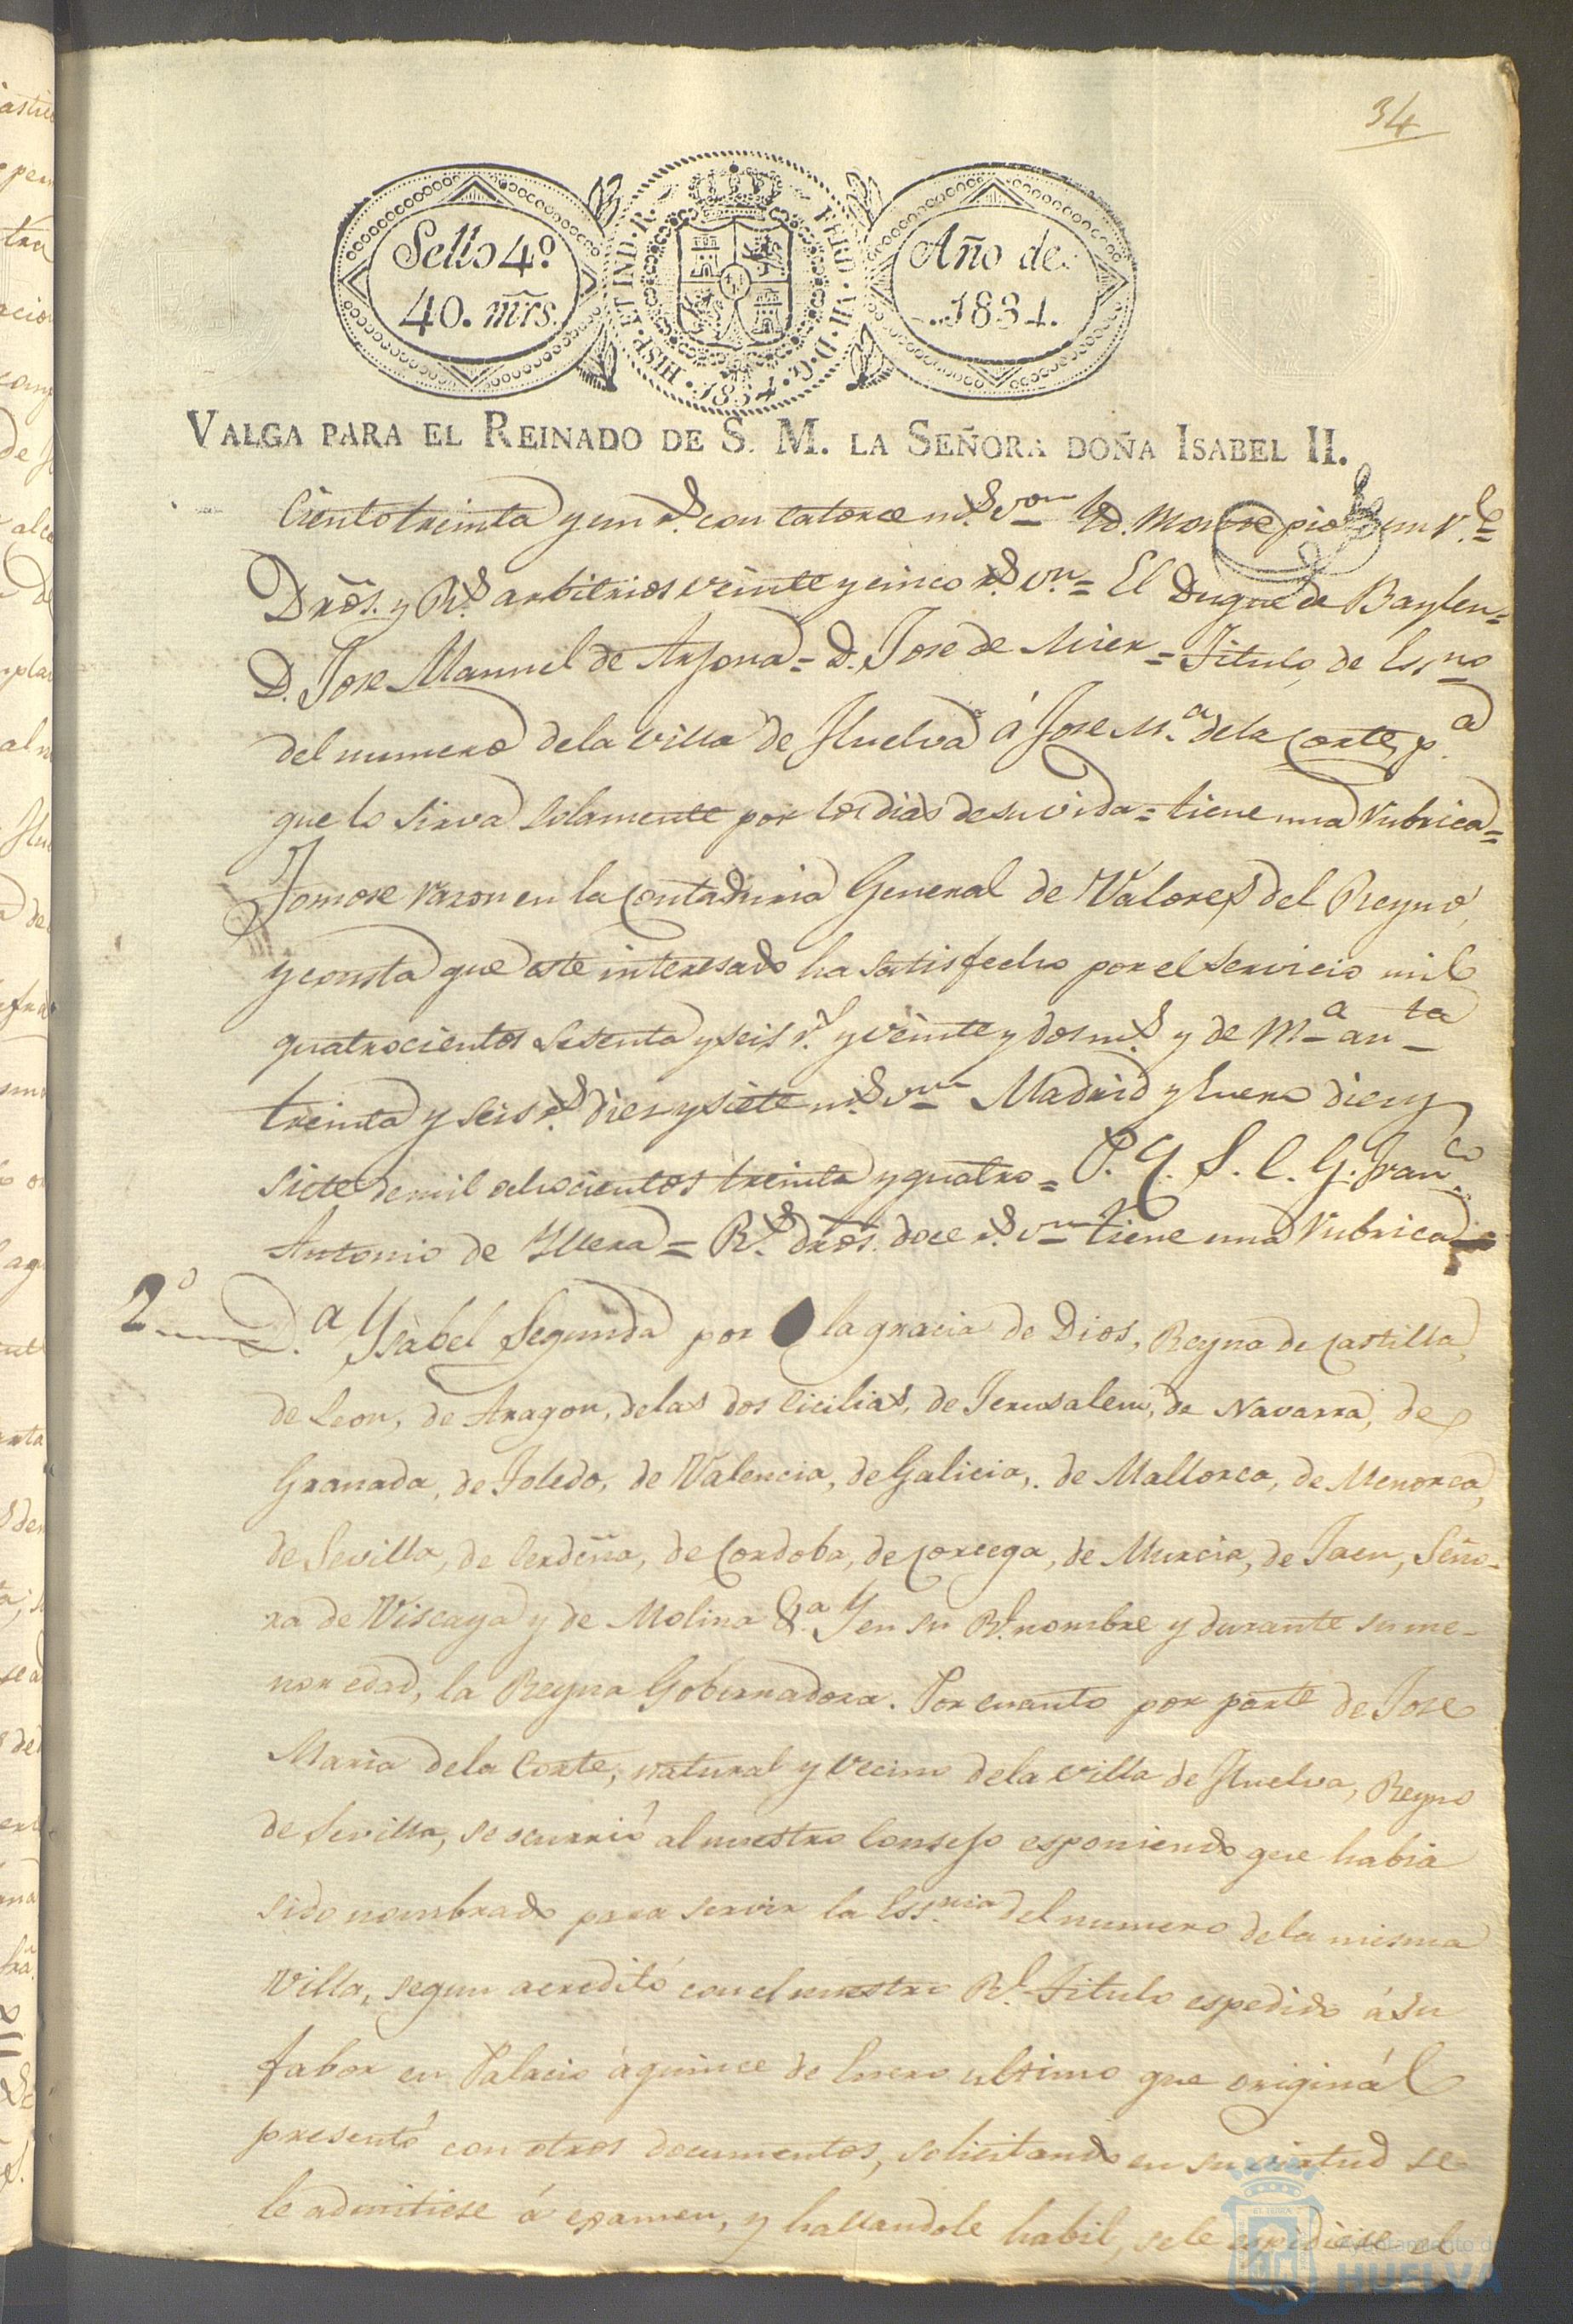 34
Sello 4º.
40. mrs.
HISP. ET IND. R.
FERD. VII. D. G.
1834.
Año de
1834.
VALGA PARA EL REINADO DE S. M. LA SEÑORA DOÑA ISABEL II.
Ciento treinta y un rs. con catorce ms. von. Yd. Monte pio
Dros. y Rs. arbitrios veinte y cinco rs. vn. = El Duque de Baylen =
D. Jose Manuel de Arjona = D. Jose de Mier = Titulo de Essno
del numero dela villa de Huelva á Jose Mª. dela Corte, pª.
que lo sirva solamente por los dias de su vida = tiene una rubrica =
Tomose razon en la Contaduria General de Valores del Reyno,
y consta que este interesado ha satisfecho por el servicio mil
quatrocientos sesenta y seis rs. y veinte y dos ms. y de Mª anta
treinta y seis rs. diez y siete ms. von. Madrid y Enero diez y
siete de mil ochocientos treinta y quatro = P. Y. S. C. G. Franco.
Antonio de Yllera = Rs. dros. doce rs. vn. tiene una rubrica =
2º D.ª Ysabel Segunda por la gracia de Dios, Reyna de Castilla,
de Leon, de Aragon, delas dos Cicilias, de Jerusalem, de Navarra, de
Granada, de Toledo, de Valencia, de Galicia, de Mallorca, de Menorca,
de Sevilla, de Cerdeña, de Cordoba, de Corcega, de Murcia, de Jaen, Seño-
ra de Viscaya y de Molina &.ª Y en su Rl. nombre y durante su me-
nor edad, la Reyna Gobernadora. Por cuanto por parte de Jose
Maria dela Corte, natural y vecino dela villa de Huelva, Reyno
de Sevilla, se ocurrió al nuestro Consejo esponiendo que habia
sido nombrado para servir la Essnia del numero dela misma
Villa, segun acreditó con el nuestro Rl. Titulo espedido á su
fabor en Palacio á quince de Enero ultimo que originál
presentó con otros documentos, solicitando en su virtud se
le admitiese á examen, y hallandole habil, se le espidiese el
Ayuntamiento de
HUELVA